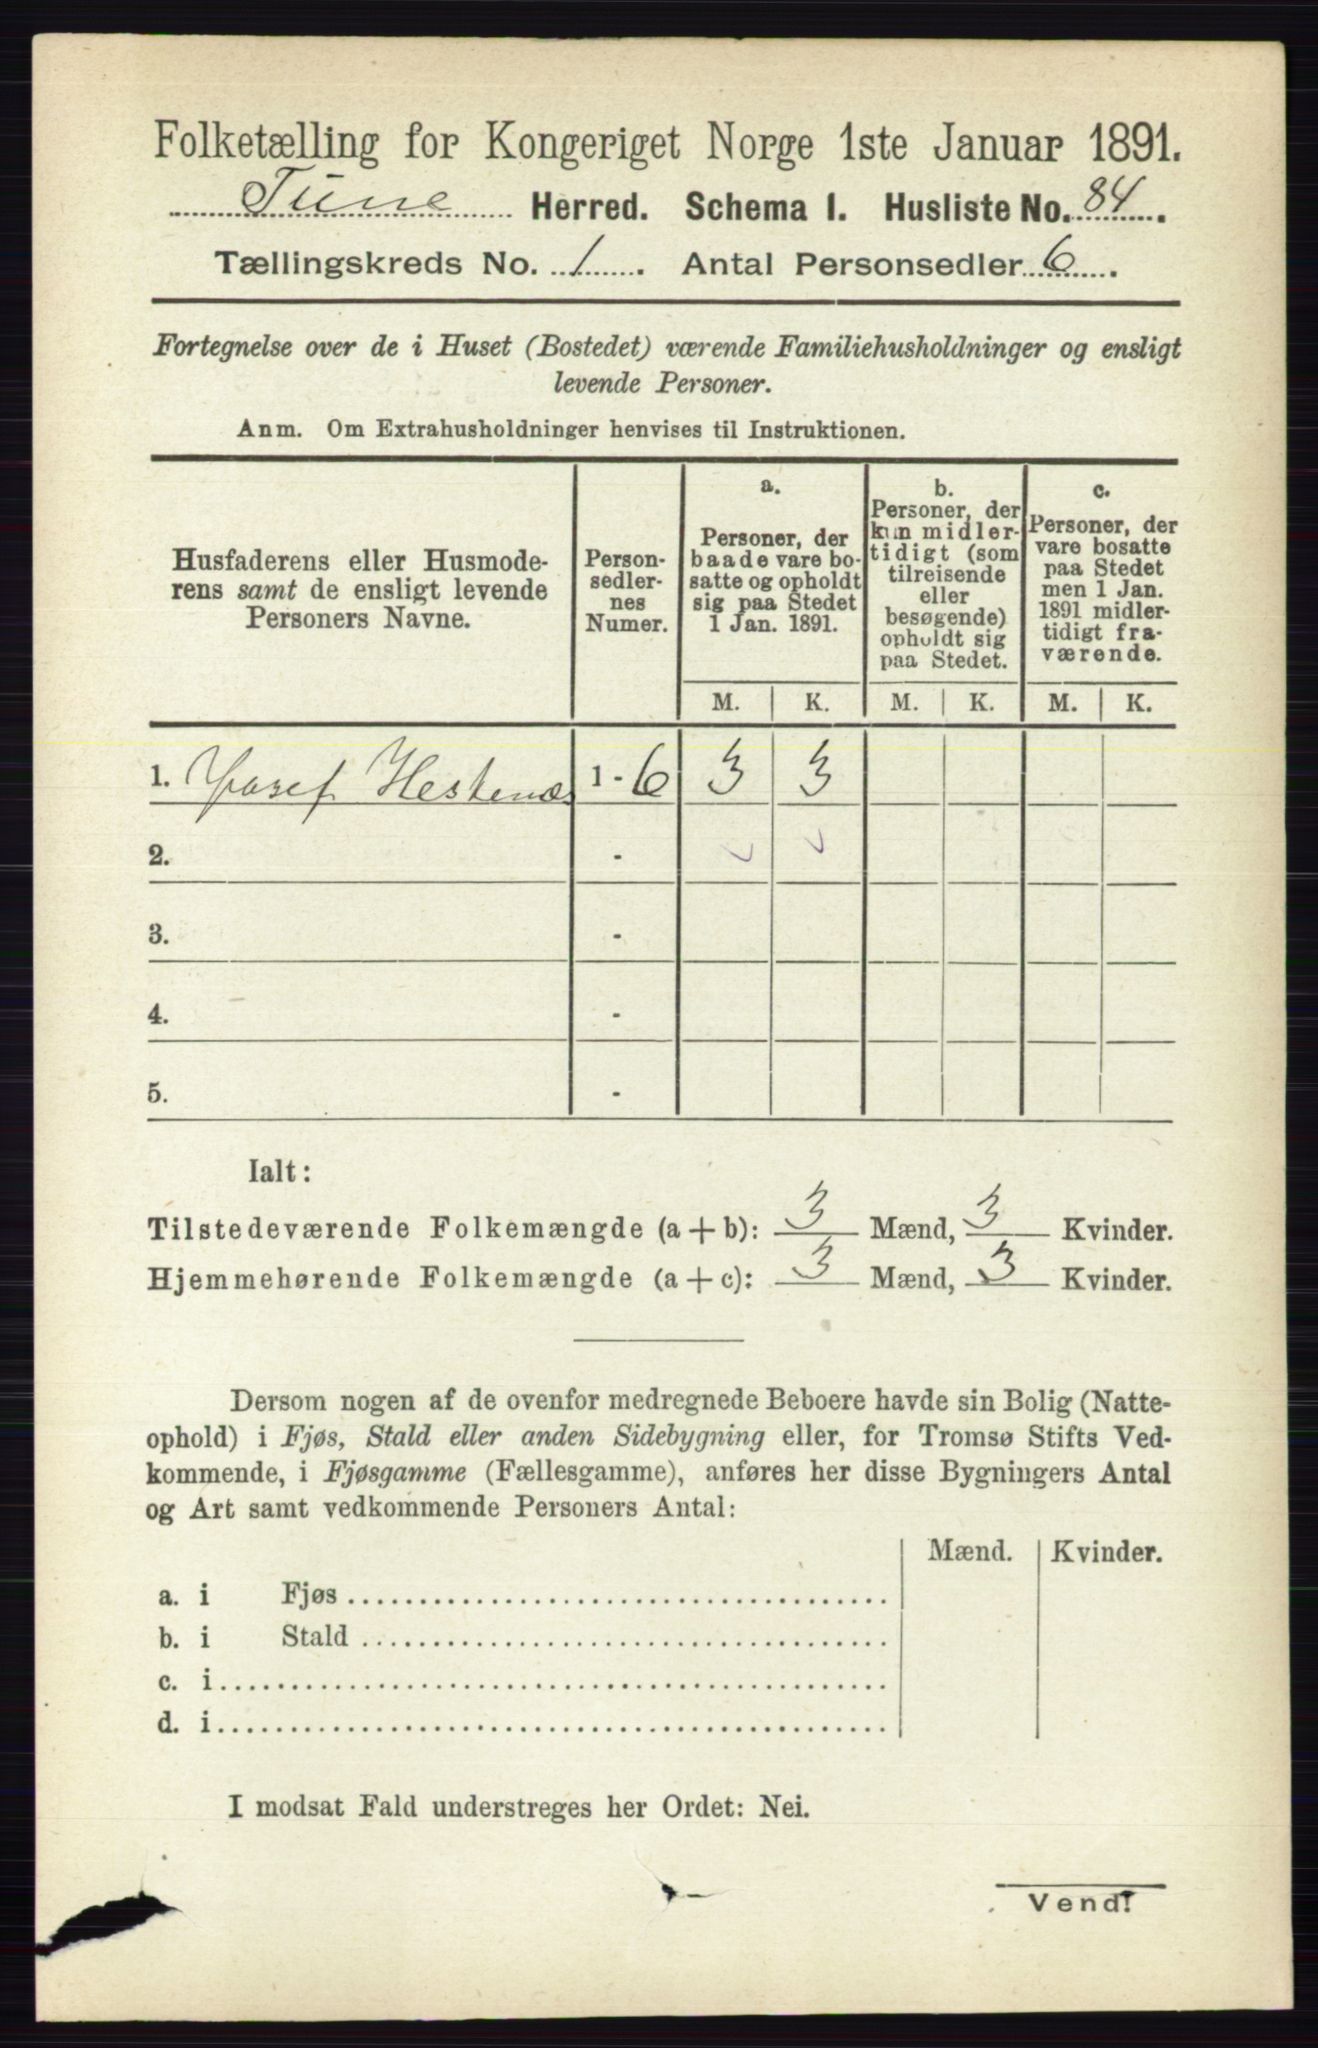 Folketælling for Kongeriget Norge 1ste Januar 1891.
Tune Herred. Schema I. Husliste No. 84.
Tællingskreds No. 1. Antal Personsedler 6.
Fortegnelse over de i Huset (Bostedet) værende Familiehusholdninger og ensligt
levende Personer.
Anm. Om Extrahusholdninger henvises til Instruktionen.
Husfaderens eller Husmode-
rens samt de ensligt levende
Personers Navne.
Person-
sedler-
nes
Numer.
a.
Personer, der
baade vare bo-
satte og opholdt
sig paa Stedet
1 Jan. 1891.
b.
Personer, der
kun midler-
tidigt (som
tilreisende
eller
besøgende)
opholdt sig
paa Stedet.
c.
Personer, der
vare bosatte
paa Stedet
men 1 Jan.
1891 midler-
tidigt fra-
værende.
M. K. M. K. M. K.
1. Josef Hestenæs 1 - 6 3 3
2. -
3. -
4. -
5. -
Ialt:
Tilstedeværende Folkemængde (a + b): 3 Mænd, 3 Kvinder.
Hjemmehørende Folkemængde (a + c): 3 Mænd, 3 Kvinder.
Dersom nogen af de ovenfor medregnede Beboere havde sin Bolig (Natte-
ophold) i Fjøs, Stald eller anden Sidebygning eller, for Tromsø Stifts Ved-
kommende, i Fjøsgamme (Fællesgamme), anføres her disse Bygningers Antal
og Art samt vedkommende Personers Antal:
Mænd. Kvinder.
a. i Fjøs
b. i Stald
c. i
d. i
I modsat Fald understreges her Ordet: Nei.
Vend!